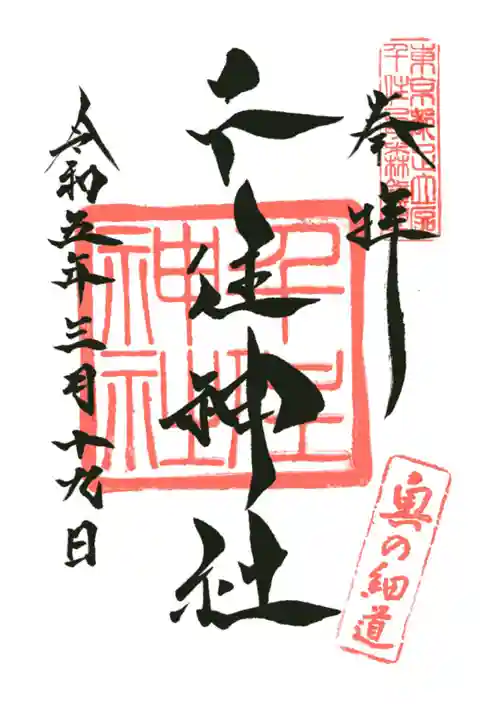 東京都足立区
千住
奉拝
千住神社
千住
神社
令和五年三月十九日
奥の細道